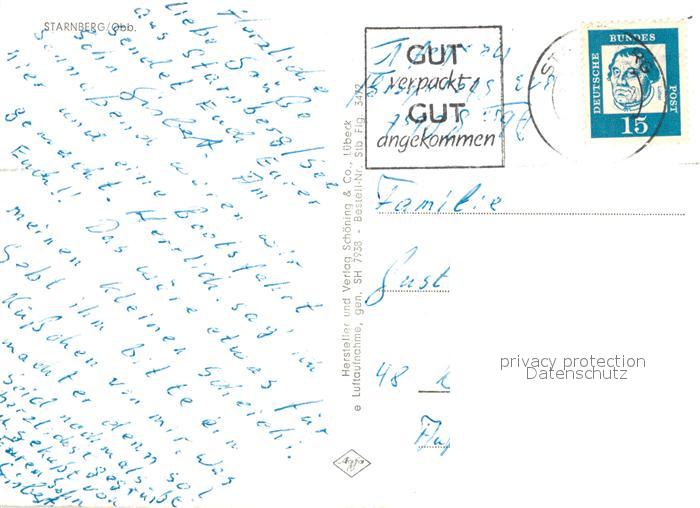 STARNBERG/Obb.
Herzliche
liebe Grüße
aus Starnberg/See
sendet Euch Euer
Sohn Gisbert. Am
Sonnabend waren wir
hier und eine Bootsfahrt
gemacht. Herrlich, sag ich
Euch!! Das wäre etwas für
meinen kleinen Schreih!
Gebt ihm bitte ein
Küßchen von mir. Was
macht er denn so?
Seid nochmals
herzlichst gegrüßt
und geküßt von
Eurem Sohn
Gisbert
Hersteller und Verlag Schöning & Co., Lübeck
© Luftaufnahme, gen. SH 7938 - Bestell-Nr. Stb Flg. 3472
Agfa
GUT
verpackt
GUT
angekommen
ST RG
DEUTSCHE
BUNDES
POST
Luther
15
Familie
Gust
48
privacy protection
Datenschutz